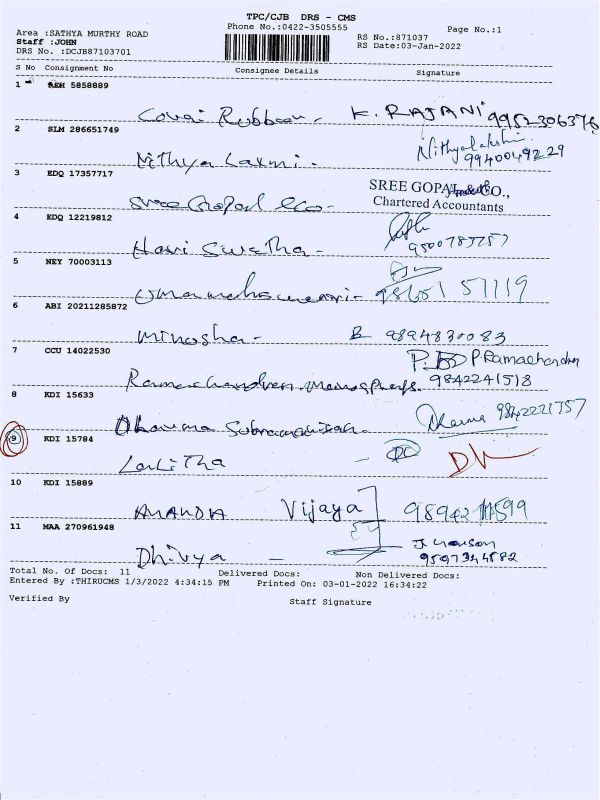 TPC/CJB DRS - CMS
Phone No.:0422-3505555
Page No.:1
Area :SATHYA MURTHY ROAD
Staff :JOHN
DRS No. :DCJB87103701
RS No.:871037
RS Date:03-Jan-2022
S No Consignment No Consignee Details Signature
1 AEH 5858889
Covai Rubber - K. RAJANI 9952306376
2 SLM 286651749
Nithya Laxmi - Nithyalakshmi
9940049229
3 EDQ 17357717
Sree Gopal &co - SREE GOPAL & CO.,
Chartered Accountants
4 EDQ 12219812
Hari Swetha -
9500785757
5 NEY 70003113
Umamaheswari - 98651 57119
6 ABI 20211285872
Minosha - 9894830083
7 CCU 14022530
P. Ramachandran
Ramachandran 9842241518
8 KDI 15633
Dharma Subramanisan 9842221757
9 KDI 15784
Lalitha -
10 KDI 15889
ANANDA Vijaya
11 MAA 270961948
Dhivya - 9597344582
Total No. Of Docs: 11 Delivered Docs: Non Delivered Docs:
Entered By :THIRUCMS 1/3/2022 4:34:15 PM Printed On: 03-01-2022 16:34:22
Verified By Staff Signature